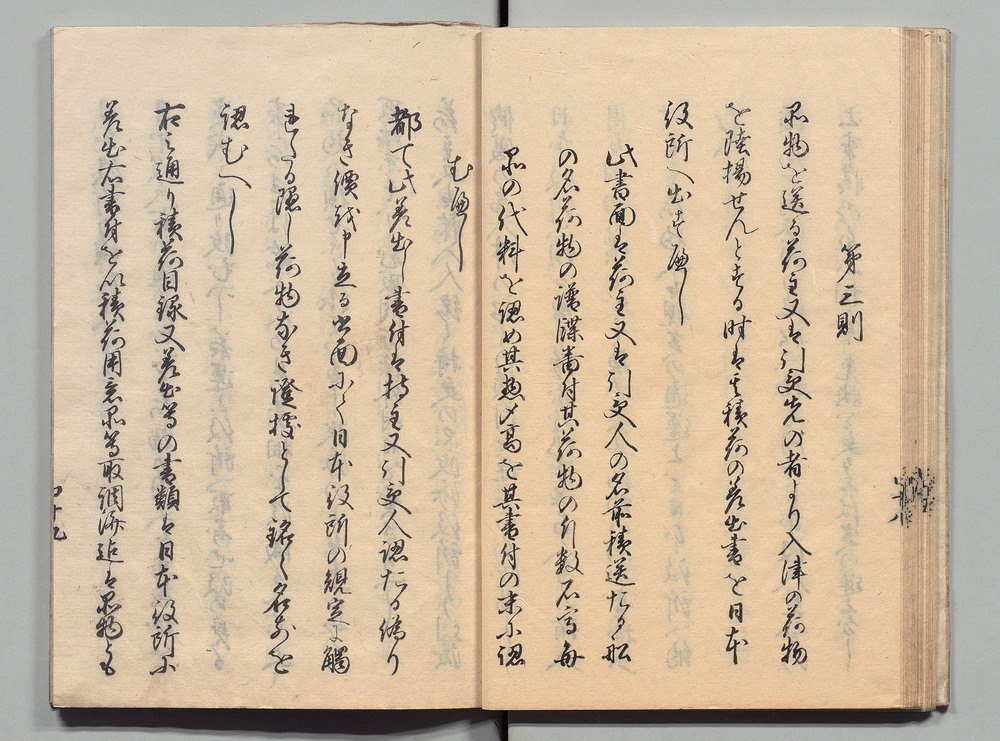 第三則
品物を送る荷主又は引受先の者より入津の荷物
を陸揚せんとする時は其積荷の差出書を日本
役所へ出すへし
此書面は荷主又は引受人の名前積送たる船
の名荷物の譜牒番付其荷物の斤数石高毎
品の代料を認め其惣〆高を其書付の末に認
むへし
都て此差出し書付は持主又引受人認たる偽り
なき價を申立る書面にて日本役所の規定に觸
れたる隠し荷物なき證據として銘々名前を
認むへし
右之通り積荷目録又差出等の書類は日本役所に
差出右書付を以積荷用意品等取調済迄は品物とも
四十九